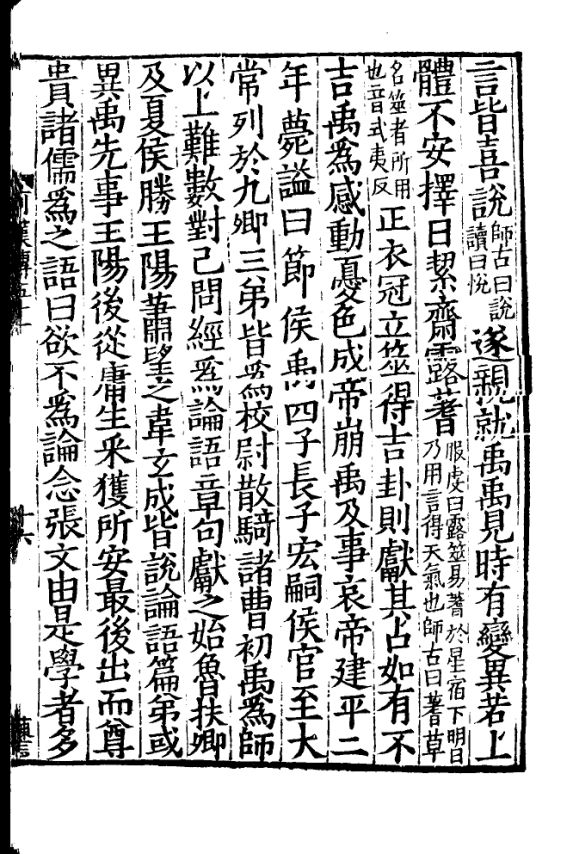 言皆喜說師古曰說讀曰悅遂親就禹禹見時有變異若上
體不安擇日絜齋露蓍服虔曰露筮易蓍於星宿下明日乃用言得天氣也師古曰蓍草
名筮者所用也音式夷反正衣冠立筮得吉卦則獻其占如有不
吉禹爲感動憂色成帝崩禹及事哀帝建平二
年薨謚曰節侯禹四子長子宏嗣侯官至大
常列於九卿三弟皆爲校尉散騎諸曹初禹爲師
以上難數對己問經爲論語章句獻之始魯扶卿
及夏侯勝王陽蕭望之韋玄成皆說論語篇第或
異禹先事王陽後從庸生采獲所安最後出而尊
貴諸儒爲之語曰欲不爲論念張文由是學者多
十六